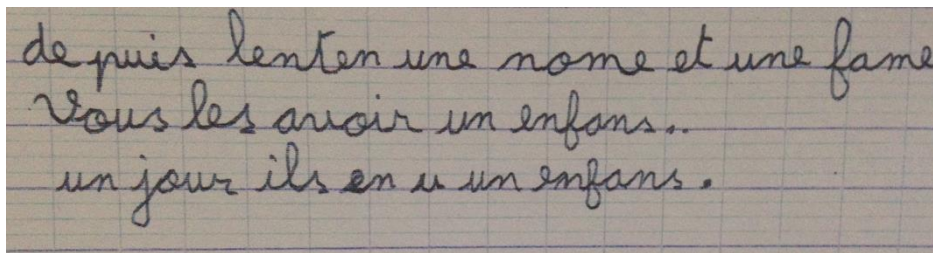 de puis lenten une nome et une fame
Vous les avoir un enfans..
un jour ils en u un enfans.